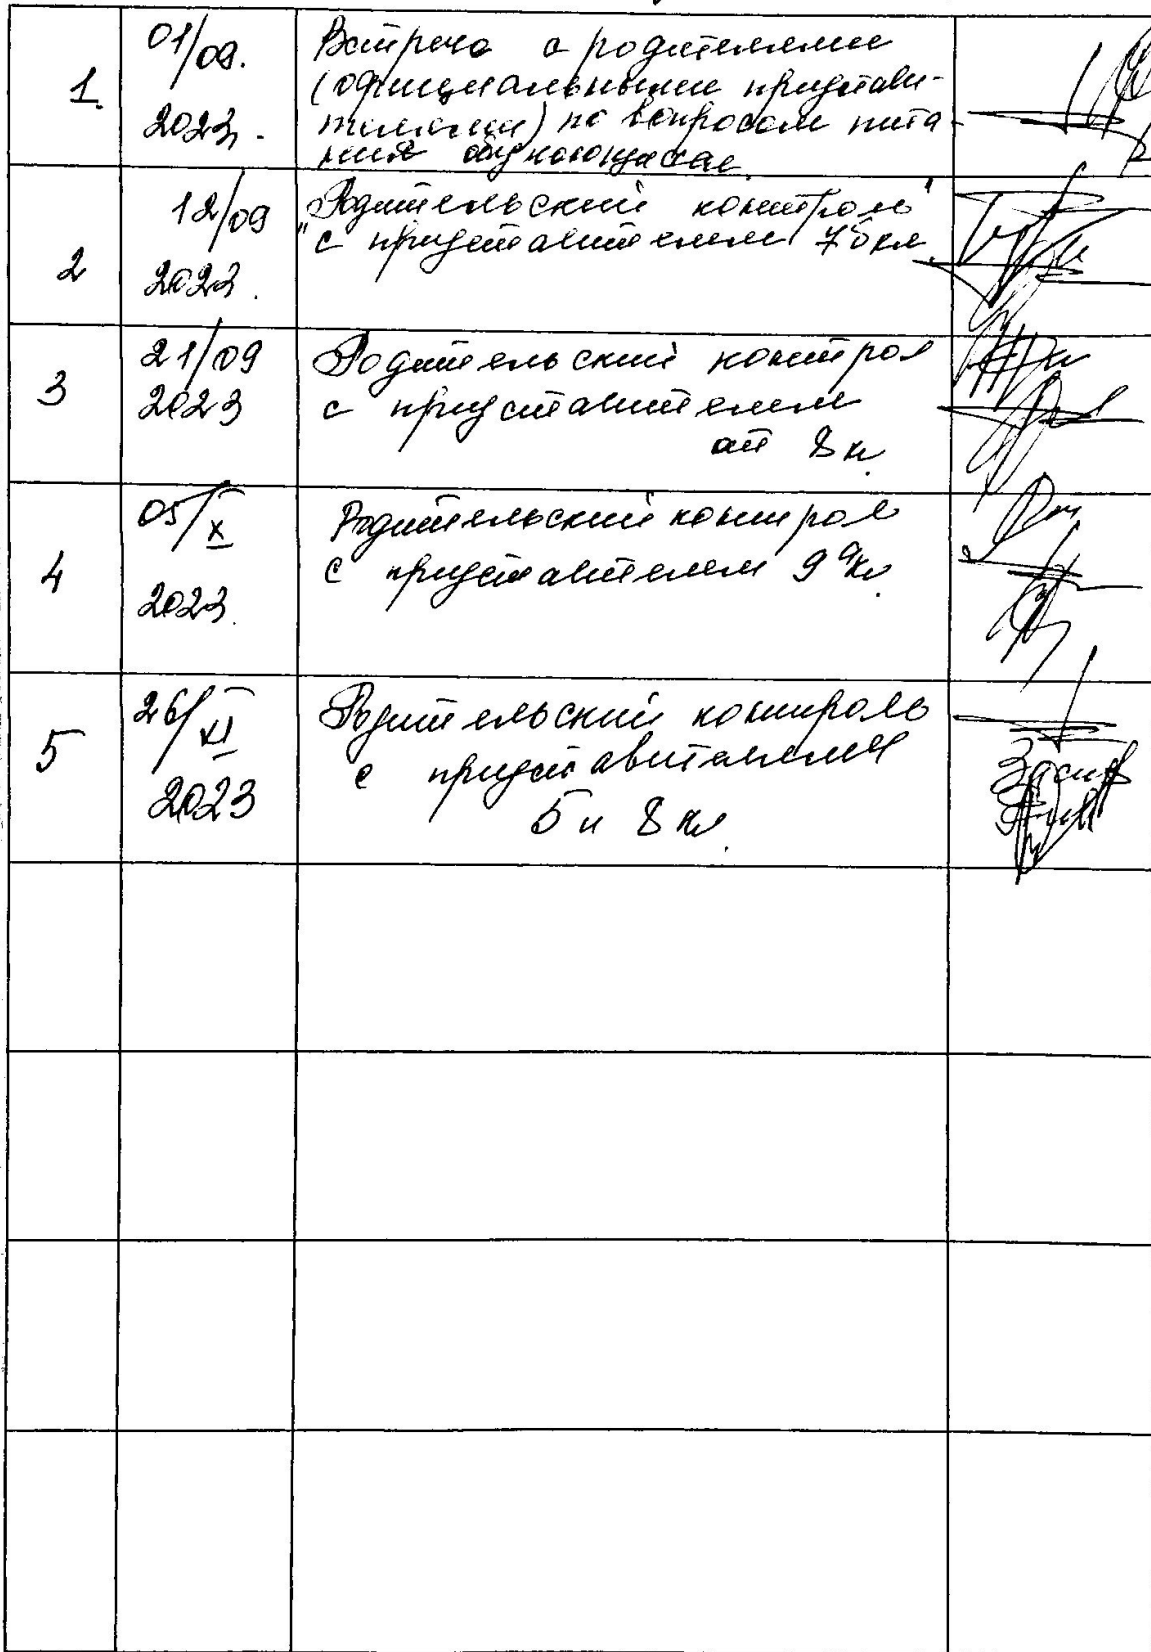 1.
01/09.
2023.
Встреча с родителями
(официальными представи-
телями) по вопросам пита-
ния обучающихся.
2
12/09
2023.
"Родительский контроль"
с представителем 7б кл.
3
21/09
2023
Родительский контрол
с представителем
от 8 кл.
4
05/X
2023.
Родительский контрол
с представителем 9 а кл.
5
26/XI
2023
Родительский контроль
с представителями
5 и 8 кл.